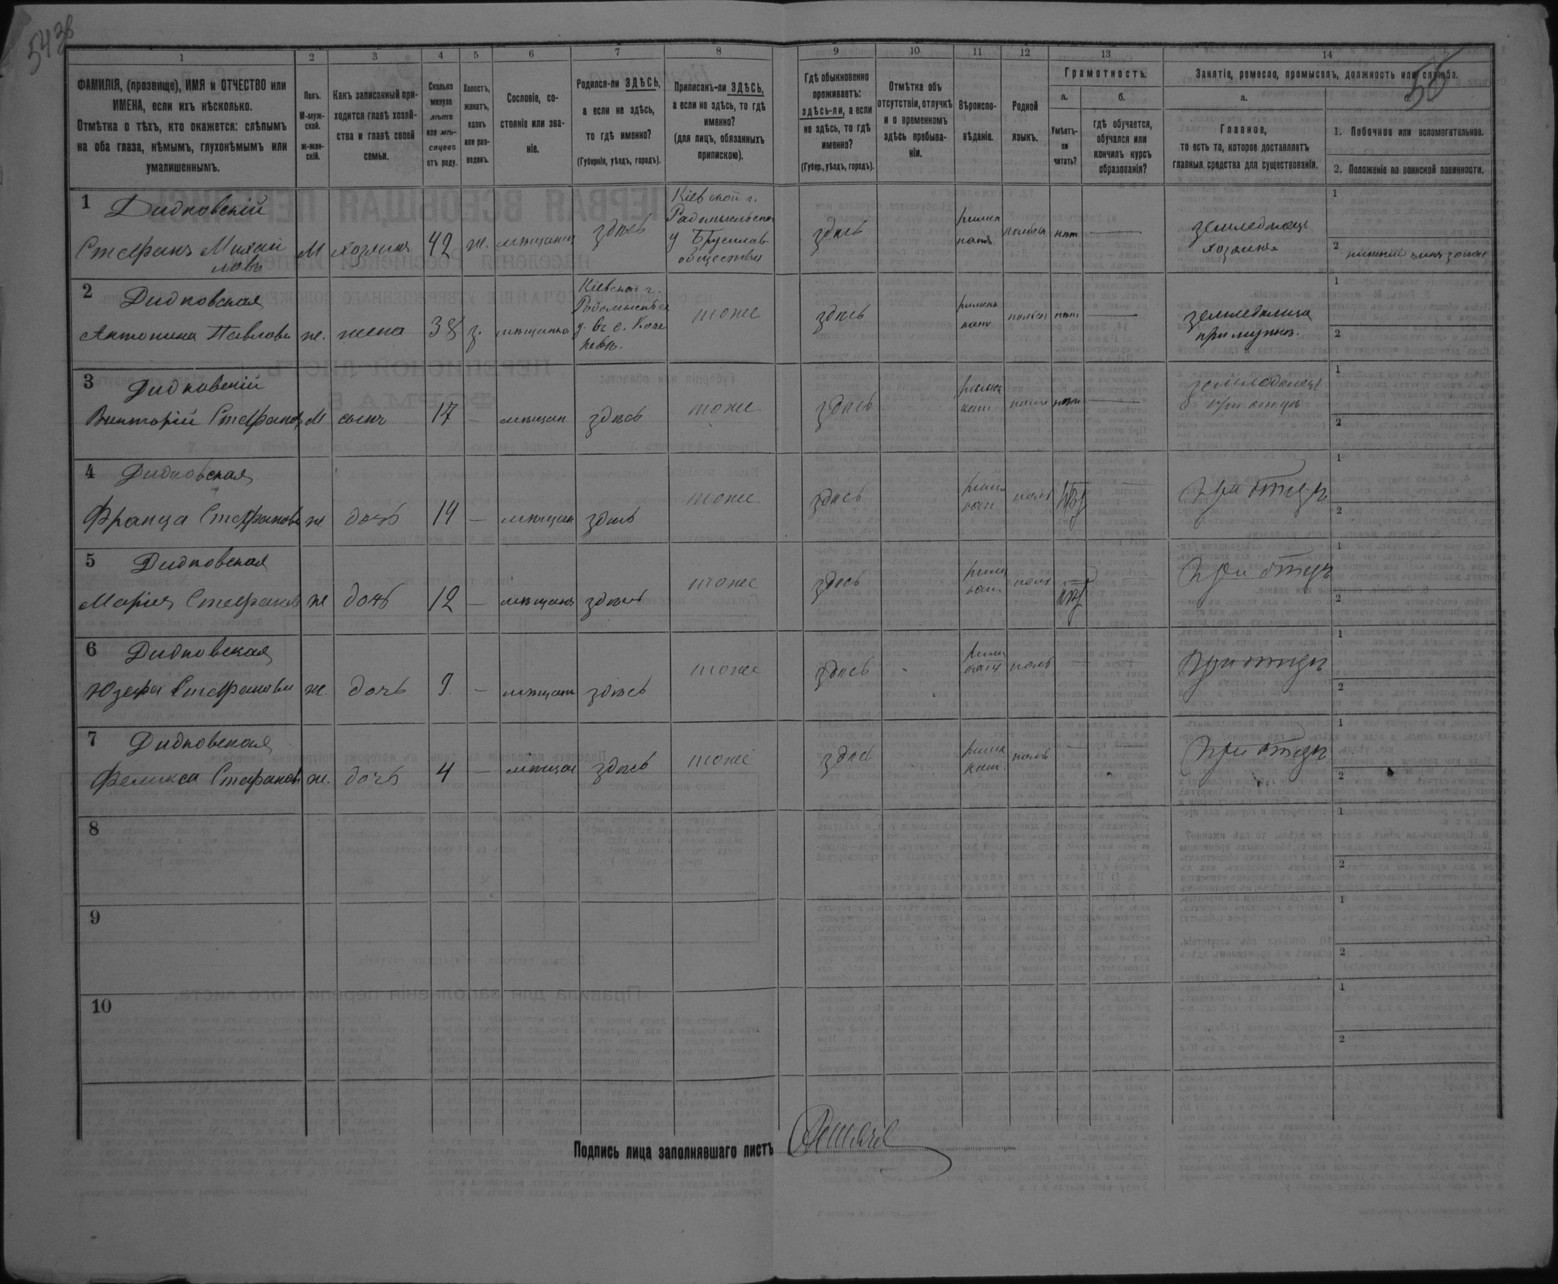 543
55
1
2
3
4
5
6
7
8
9
10
11
12
13
14
ФАМИЛІЯ, (прозвище), ИМЯ и ОТЧЕСТВО или
ИМЕНА, если ихъ нѣсколько.
Отмѣтка о тѣхъ, кто окажется: слѣпымъ
на оба глаза, нѣмымъ, глухонѣмымъ или
умалишеннымъ.
Полъ.
М-муж-
ской.
ж-жен-
скій.
Какъ записанный при-
ходится главѣ хозяй-
ства и главѣ своей
семьи.
Сколько
минуло
лѣтъ
или мѣ-
сяцевъ
отъ роду.
Холостъ,
женатъ,
вдовъ
или раз-
веденъ.
Сословіе, со-
стояніе или зва-
ніе.
Родился-ли ЗДѢСЬ,
а если не здѣсь,
то гдѣ именно?
(Губернія, уѣздъ, городъ).
Приписанъ-ли ЗДѢСЬ,
а если не здѣсь, то гдѣ
именно?
(для лицъ, обязанныхъ
припискою).
Гдѣ обыкновенно
проживаетъ:
здѣсь-ли, а если
не здѣсь, то гдѣ
именно?
(Губер., уѣздъ, городъ).
Отмѣтка объ
отсутствіи, отлучкѣ
и о временномъ
здѣсь пребыва-
ніи.
Вѣроиспо-
вѣданіе.
Родной
языкъ.
Грамотность.
а.
Умѣетъ-
ли
читать?
б.
гдѣ обучается,
обучался или
кончилъ курсъ
образованія?
Занятіе, ремесло, промыселъ, должность или служба.
а.
Главное,
то есть то, которое доставляетъ
главныя средства для существованія.
1. Побочное или вспомогательное.
2. Положеніе по воинской повинности.
1 Дидковскій
Стефанъ Михай
ловъ
М хозяинъ 42 ж. мѣщанин здѣсь
Кіевской г.
Радомысльско
у Брусилов
общество
здѣсь
римск
кат
польск нѣт
земледѣлецъ
хозяинъ
1
2
2 Дидковская
Антонина Павлова ж. жена 38 з. мѣщанка
Кіевской г.
у. въ с.
тоже здѣсь
римск
кат
польск нѣт
земледѣлица
при мужѣ.
1
2
3 Дидковскій
Викторій Стефанов М сынъ 17 — мѣщан здѣсь тоже здѣсь
римск
кат
польс нѣт
земледѣлецъ
при отцѣ
1
2
4 Дидковская
Франца Стефанова ж дочь 14 — мѣщан здѣсь тоже здѣсь
римск
кат
польс нѣт
При отцѣ
1
2
5 Дидковская
Марія Стефанов ж дочь 12 — мѣщанк здѣсь тоже здѣсь
римск
кат
польс нѣт
При отцѣ
1
2
6 Дидковская
Юзефа Стефанова ж дочь 9 — мѣщанк здѣсь тоже здѣсь
римск
кат
польс
При отцѣ
1
2
7 Дидковская
Феликса Стефанов ж. дочь 4 — мѣщан здѣсь тоже здѣсь
римск
кат
польс
При отцѣ
1
2
8
1
2
9
1
2
10
1
2
Подпись лица заполнявшаго листъ